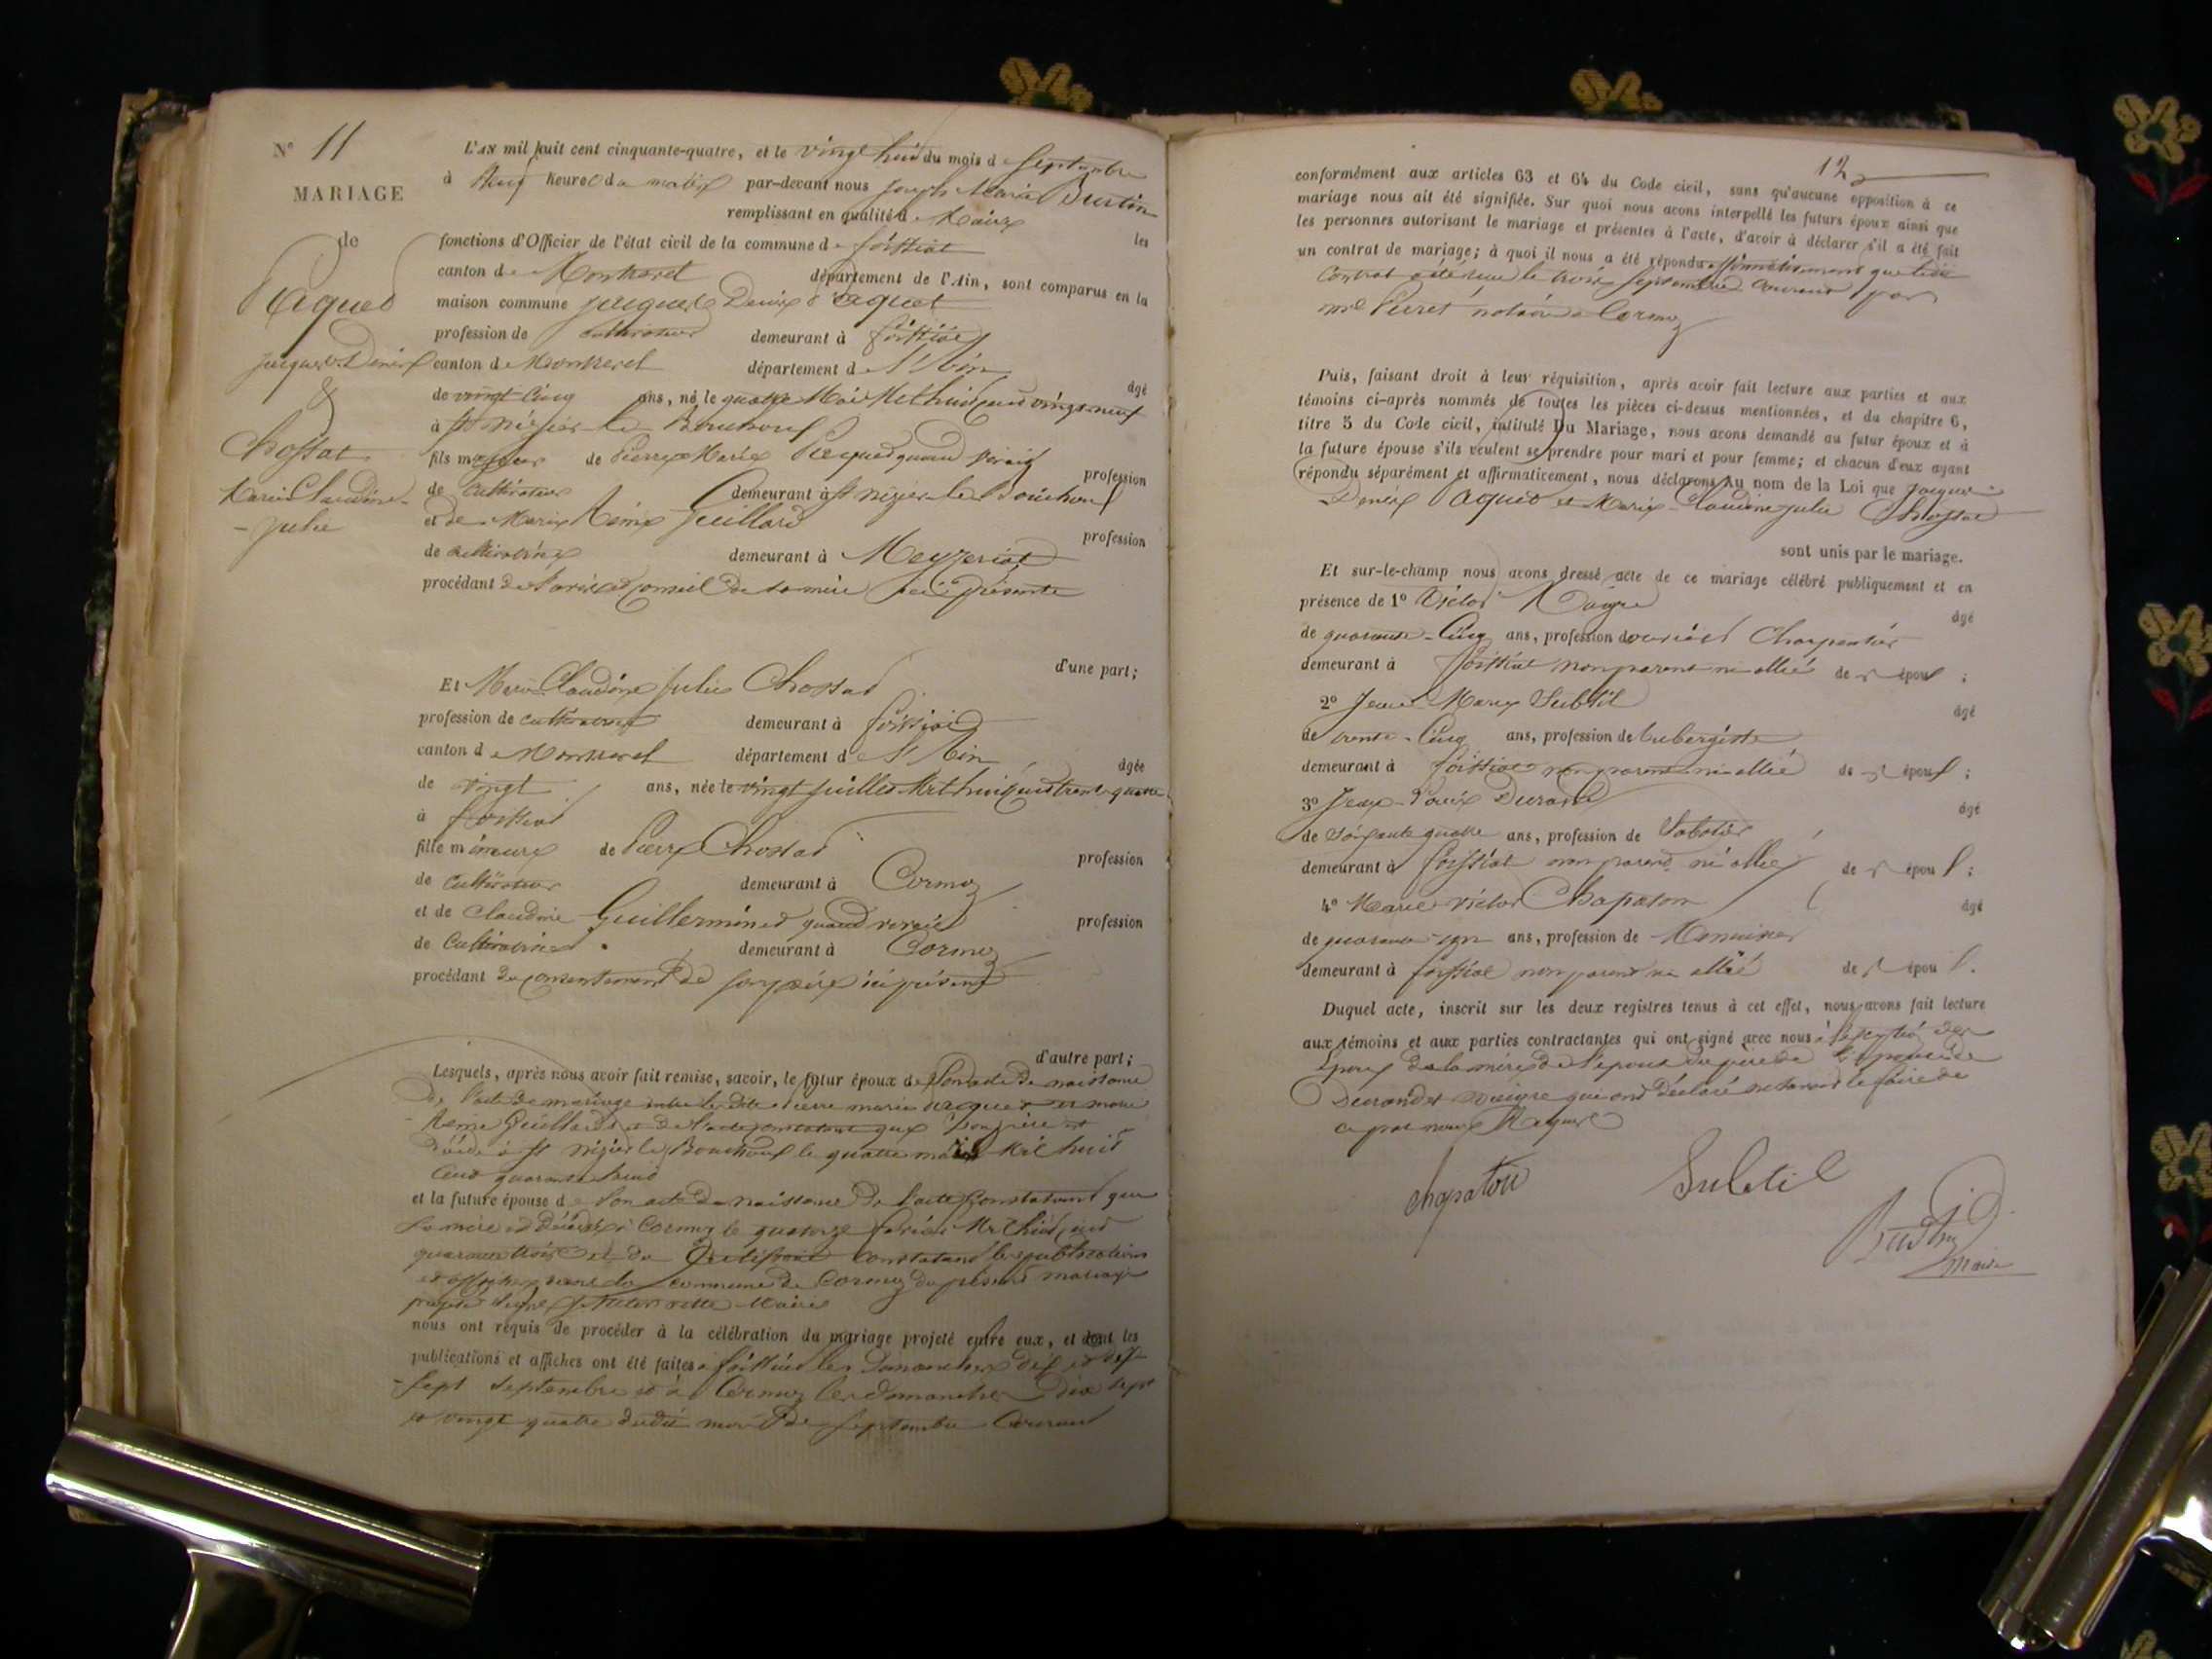 N° 11
MARIAGE
de
Paquet
Jacques Denis
&
Chossat
Marie Claudine
- Julie
L'AN mil huit cent cinquante-quatre, et le vingt huit du mois de Septembre
à Neuf heures du matin par-devant nous Joseph Marie Bustin
remplissant en qualité de Maire les
fonctions d'Officier de l'état civil de la commune de foissiat
canton de Montrevel département de l'Ain, sont comparus en la
maison commune Jacques Denis Paquet
profession de cultivateur demeurant à foissiat
canton de Montrevel département de l'Ain âgé
de vingt Cinq ans, né le quatre Mai Mil huit cent vingt-neuf
à St Nizier le Bouchoux
fils majeur de Pierre Marie Paquet quand vivait profession
de Cultivateur demeurant à St Nizier le Bouchoux
et de Marie Guillard profession
de cultivatrice demeurant à Meyzeriat
procédant de l'avis et conseil de sa mère ici présente
d'une part;
Et Marie Claudine Julie Chossat
profession de cultivatrice demeurant à foissiat
canton de Montrevel département de l'Ain âgée
de vingt ans, née le vingt Juillet Mil huit cent trente-quatre
à foissiat
fille mineure de Pierre Chossat profession
de Cultivateur demeurant à Cormoz
et de Claudine Guillerminet quand vivait profession
de Cultivatrice demeurant à Cormoz
procédant du consentement de son père ici présent
d'autre part;
Lesquels, après nous avoir fait remise, savoir, le futur époux de Son acte de naissance
de l'acte de mariage entre les dits Pierre marie Paquet et marie
Guillard et de l'acte constatant que son père est
décédé à St Nizier le Bouchoux le quatre mars Mil huit
Cent quarante
et la future épouse de Son acte de naissance De l'acte Constatant que
Sa mère est Décédée à Cormoz le quatorze février Mil huit cent
quarante trois et du Certificat Constatant les publications
et affiches dans la commune de Cormoz du présent mariage
projeté Signé Maire
nous ont requis de procéder à la célébration du mariage projeté entre eux, et dont les
publications et affiches ont été faites à foissiat les Dimanches dix et dix
- Sept Septembre et à Cormoz les dimanches Dix sept
et vingt quatre dudit mois de Septembre Courant
12
conformément aux articles 63 et 64 du Code civil, sans qu'aucune opposition à ce
mariage nous ait été signifiée. Sur quoi nous avons interpellé les futurs époux ainsi que
les personnes autorisant le mariage et présentes à l'acte, d'avoir à déclarer s'il a été fait
un contrat de mariage; à quoi il nous a été répondu affirmativement que ledit
Contrat a été reçu le trois Septembre Courant par
me Perret notaire à Cormoz
Puis, faisant droit à leur réquisition, après avoir fait lecture aux parties et aux
témoins ci-après nommés de toutes les pièces ci-dessus mentionnées, et du chapitre 6,
titre 5 du Code civil, intitulé Du Mariage, nous avons demandé au futur époux et à
la future épouse s'ils veulent se prendre pour mari et pour femme; et chacun d'eux ayant
répondu séparément et affirmativement, nous déclarons Au nom de la Loi que Jacques
Denis Paquet et Marie Claudine Julie Chossat
sont unis par le mariage.
Et sur-le-champ nous avons dressé acte de ce mariage célébré publiquement et en
présence de 1° Victor âgé
de quarante-Cinq ans, profession d'ouvrier Charpentier
demeurant à foissiat non parent ni allié des époux ;
2° Jean Marie Subtil âgé
de trente-Cinq ans, profession de Aubergiste
demeurant à foissiat non parent ni allié des époux ;
3° Jean-Louis Durand âgé
de Soixante quatre ans, profession de Sabotier
demeurant à foissiat non parent ni allié des époux ;
4° Marie Victor Chapaton âgé
de quarante un ans, profession de Menuisier
demeurant à foissiat non parent ni allié des époux.
Duquel acte, inscrit sur les deux registres tenus à cet effet, nous avons fait lecture
aux témoins et aux parties contractantes qui ont signé avec nous à l'exception des
Époux de la mère de l'époux du père de l'épouse de
Durand et que ont déclaré ne savoir le faire de
ce par nous Requis
Chapaton
Subtil
Bustin
Maire